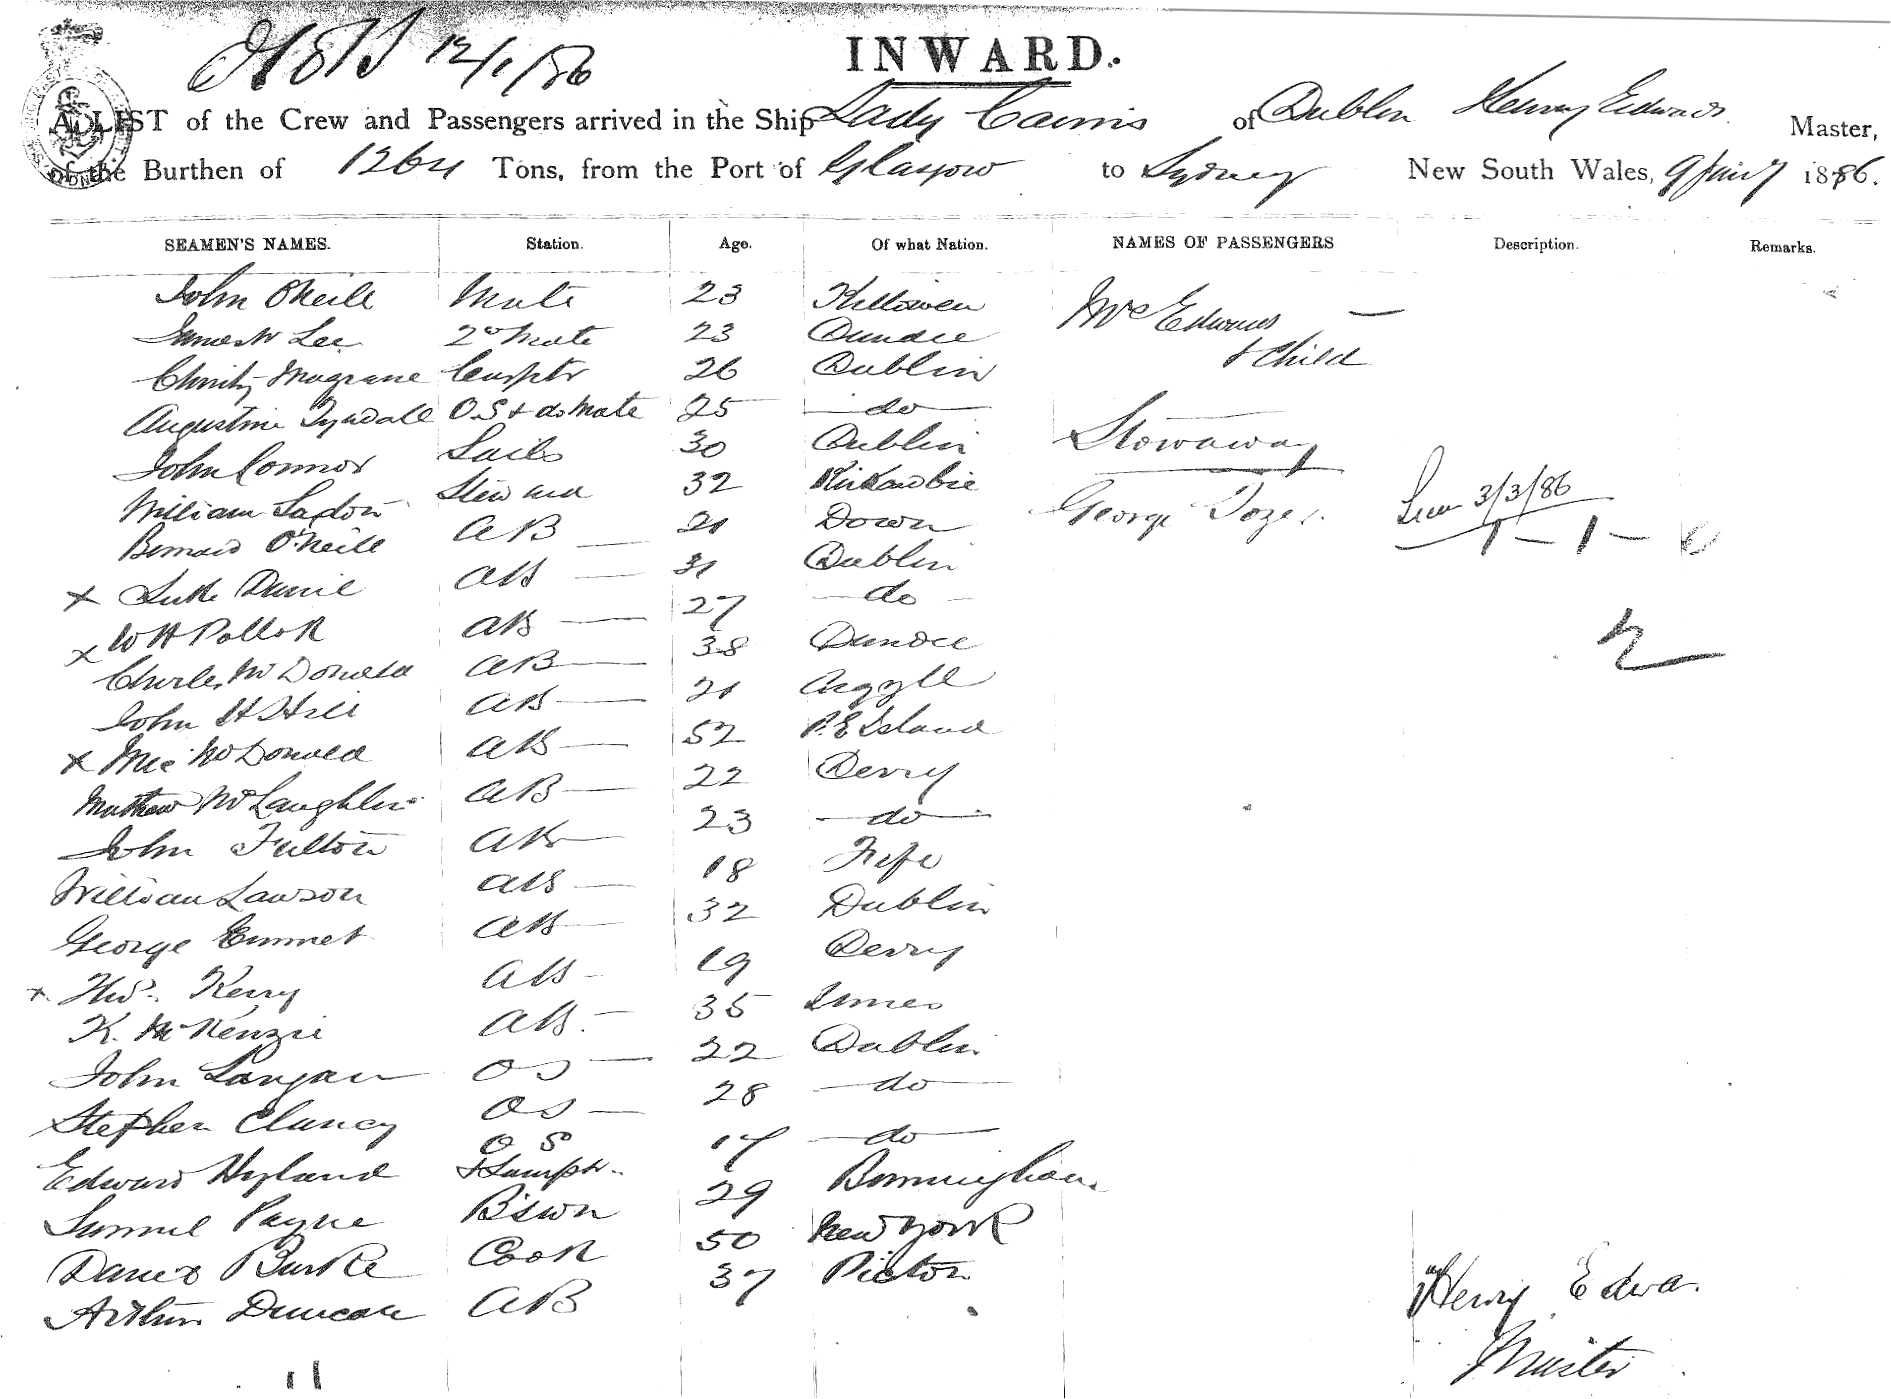 12/1/86
INWARD.
A LIST of the Crew and Passengers arrived in the Ship Lady Cairns of Dublin Henry Edwards Master,
of the Burthen of 1264 Tons, from the Port of Glasgow to Sydney New South Wales, 9 Jany 1886.
SEAMEN'S NAMES. Station. Age. Of what Nation. NAMES OF PASSENGERS Description. Remarks.
John O'Neill Mate 23 Killowen Mrs Edwards —
James W Lee 2nd Mate 23 Dundee & Child
Christy Magrane Carptr 26 Dublin
Augustine Tyndall O.S & do Mate 25 — do —
John Connor Sails 30 Dublin Stowaway
William Steward 32
Bernard O'Neill AB — 21 Down George Tozer. 3/3/86
1 – 1 –
x Luke AB — 31 Dublin
x W H Pollok AB — 27 — do —
Charles McDonald AB — 38 Dundee
John H Hill AB — 21 Argyll
x McDonald AB — 52 P. E Island
Mathew McLaughlin AB — 22 Derry
John Fulton AB — 23 — do —
William Lawson AB — 18 Fife
George Emmet AB — 32 Dublin
x Thos. Kerry AB - 19 Derry
K. McKenzie AB. - 35
John Langan OS — 22 Dublin
Stephen Clancy OS — 28 — do —
Edward Hyland O S & Lamptr. 17 — do —
Samuel Payne B'swn 29 Birmingham
Daniel Burke Cook 50 New York
Arthur Duncan AB 37 Picton
Henry Edwa.
Master
11